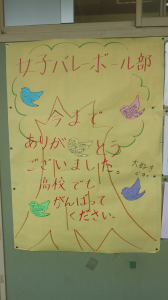 女子バレーボール部
今まで
ありがとう
ございました。
高校でも
がんばって
ください。